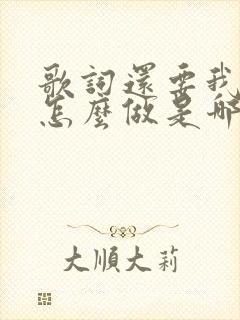 歌詞還要我
怎麼做是哪
大順大莉